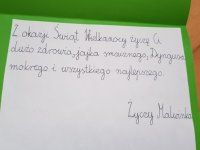 Z okazji Świąt Wielkanocy życzę Ci
dużo zdrowia, jajka smacznego, Dyngusa
mokrego i wszystkiego najlepszego.
Życzy Malwinka